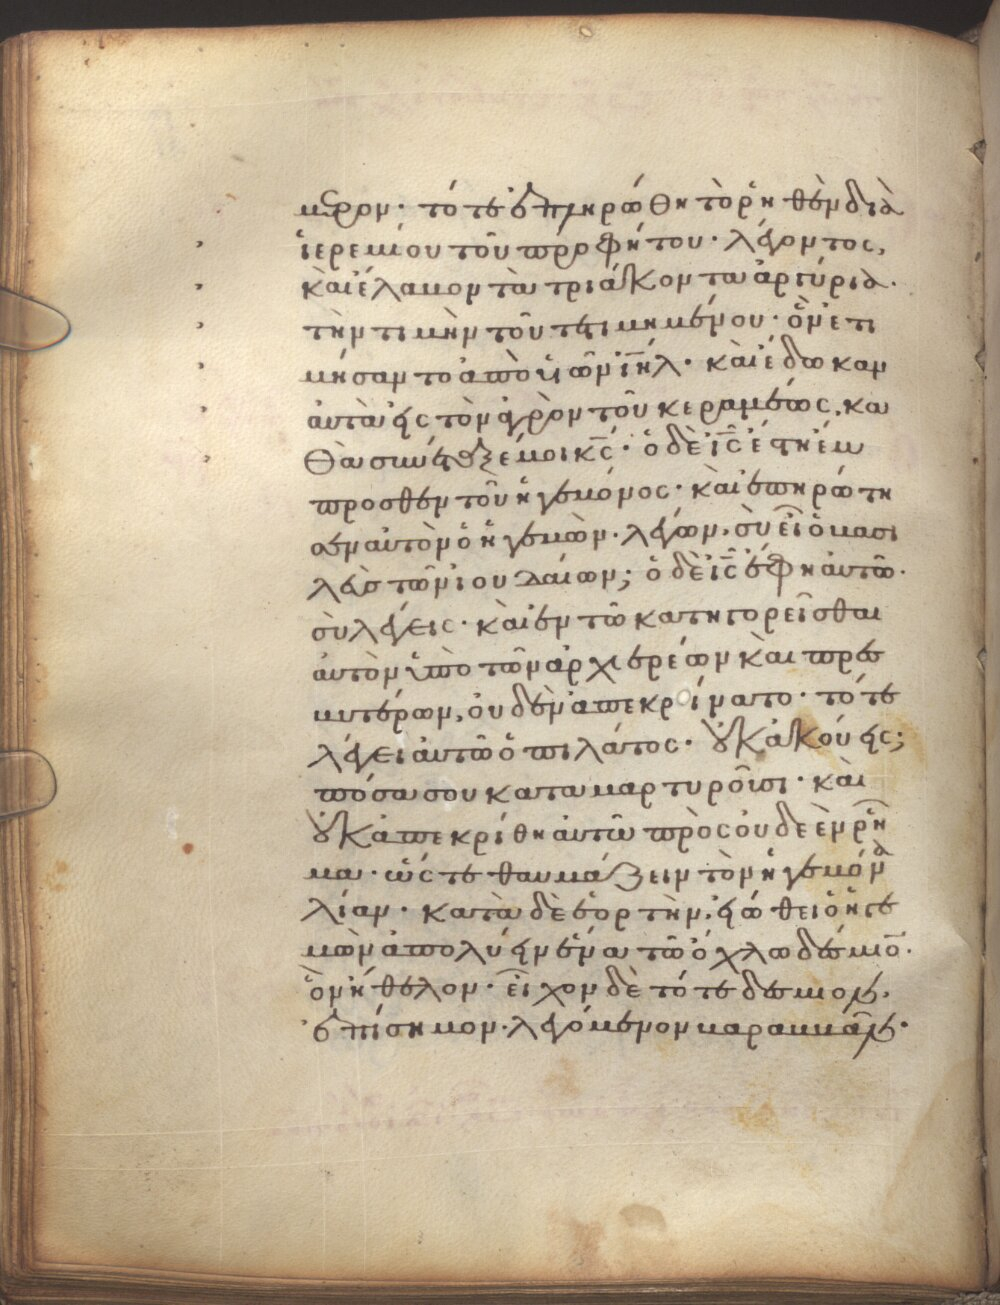 μερον· τότε ἐπληρώθη τὸ ῥηθὲν διὰ
ἱερεμίου τοῦ προφήτου· λέγοντος,
κὰι ἔλαβον τὰ τριάκοντα ἀργύρια·
τὴν τιμὴν τοῦ τετιμημένου· ὃν ἐτι
μήσαντο ἀπὸ ὑιῶν ἰηλ· κὰι ἔδωκαν
ἀυτὰ εἰς τὸν ἀγρὸν τοῦ κεραμέως, κα
θὰ συνέταξέ μοι κς· ὁ δὲ ις ἔστη ἔμ
προσθεν τοῦ ἡγεμόνος· κὰι ἐπηρώτη
σεν αυτὸν ὁ ἡγεμὼν· λέγων, σὺ εἶ ὁ βασι
λεὺς τῶν ἰουδαίων; ὁ δὲ ις ἔφη ἀυτῶ·
σὺ λέγεις· κὰι ἐν τῶ κατηγορεῖσθαι
ἀυτὸν ὑπὸ τῶν ἀρχιερέων κὰι πρεσ
βυτέρων, ὀυδὲν ἀπεκρίνατο· τότε
λέγει ἀυτῶ ὁ πιλάτος· ὀυκ ἀκούεις;
πόσα σου καταμαρτυροῦσι· κὰι
ὀυκ ἀπεκρίθη ἀυτῶ πρὸς ὀυδε ἓν ῥῆ
μα· ὥστε θαυμάζειν τὸν ἡγεμόνα
λίαν· κατὰ δὲ ἑορτὴν, εἰώθει ὁ ἡγε
μὼν ἀπολύειν ἕνα τῶ ὄχλω δέσμιον·
ὃν ἤθελον· εἶχον δὲ τότε δέσμιον,
ἐπίσημον· λεγόμενον βαραββᾶν·